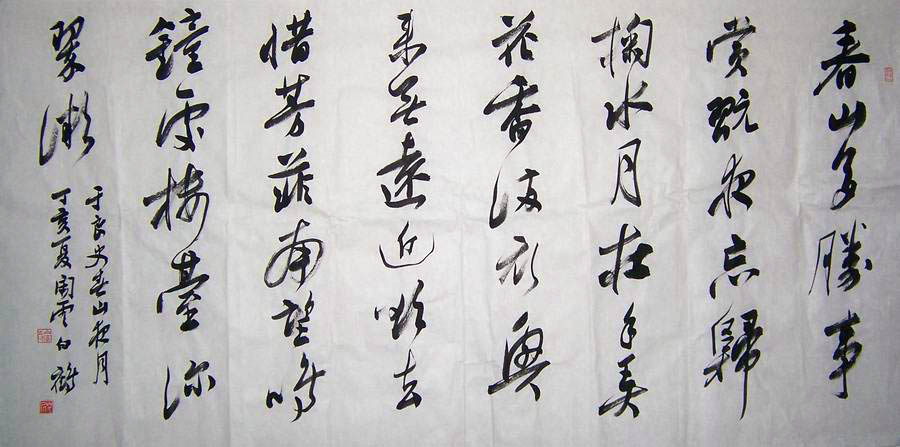 春山多勝事
賞翫夜忘歸
掬水月在手弄
花香滿衣興
來無遠近欲去
惜芳菲南望鳴
鐘處樓臺深
翠微
于良史春山夜月
丁亥夏